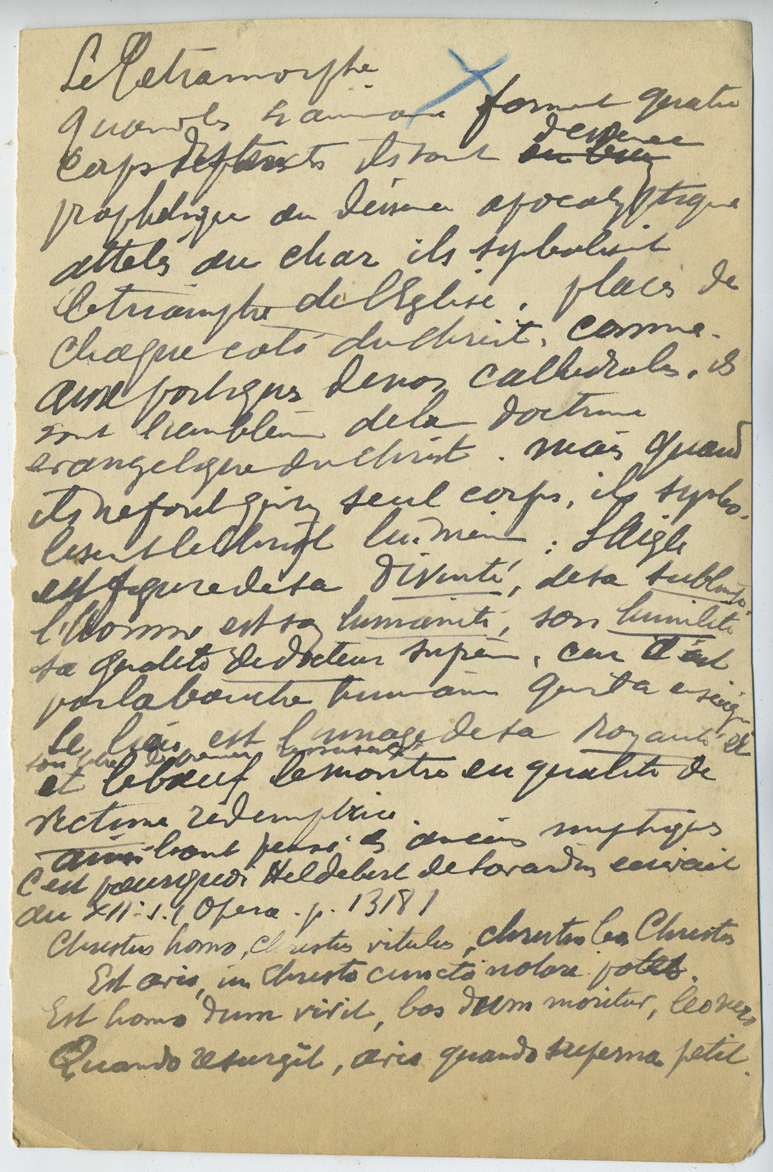 Le Tétramorphe
Quand les 4 animaux forment quatre
Corps distincts ils sont
prophétique ou apocalyptique
attelés au char ils sybolisent
le triomphe de l'Eglise. placés de
Chaque coté du Christ, comme
aux portiques de nos cathedrales, ils
sont l'emblème de la doctrine
evangelique du Christ. mais quand
ils ne font qu'un seul corps, ils symbo-
lisent le Christ lui même : L'Aigle
est figure de sa divinité, de sa
l'homme est sa humanité, son humilité
sa qualité de docteur suprême, car c'est
par la bouche humaine qu'il a enseigné
le lion est l'image de sa Royauté et
son
et le bœuf le montre en qualité de
victime rédemptrice.
ainsi l'ont pensé les anciens mystiques
C'est pourquoi Heldebert de Lavardin ecrivait
au XII. s. ( Opera. p. 1318 )
Christus homo, christus vitulus, christus leo Christus
Est avis, in Christo cuncta notare potes.
Est homo dum vivit, bos dum moritur, leo vero
Quando resurgit, avis quando superna petit.